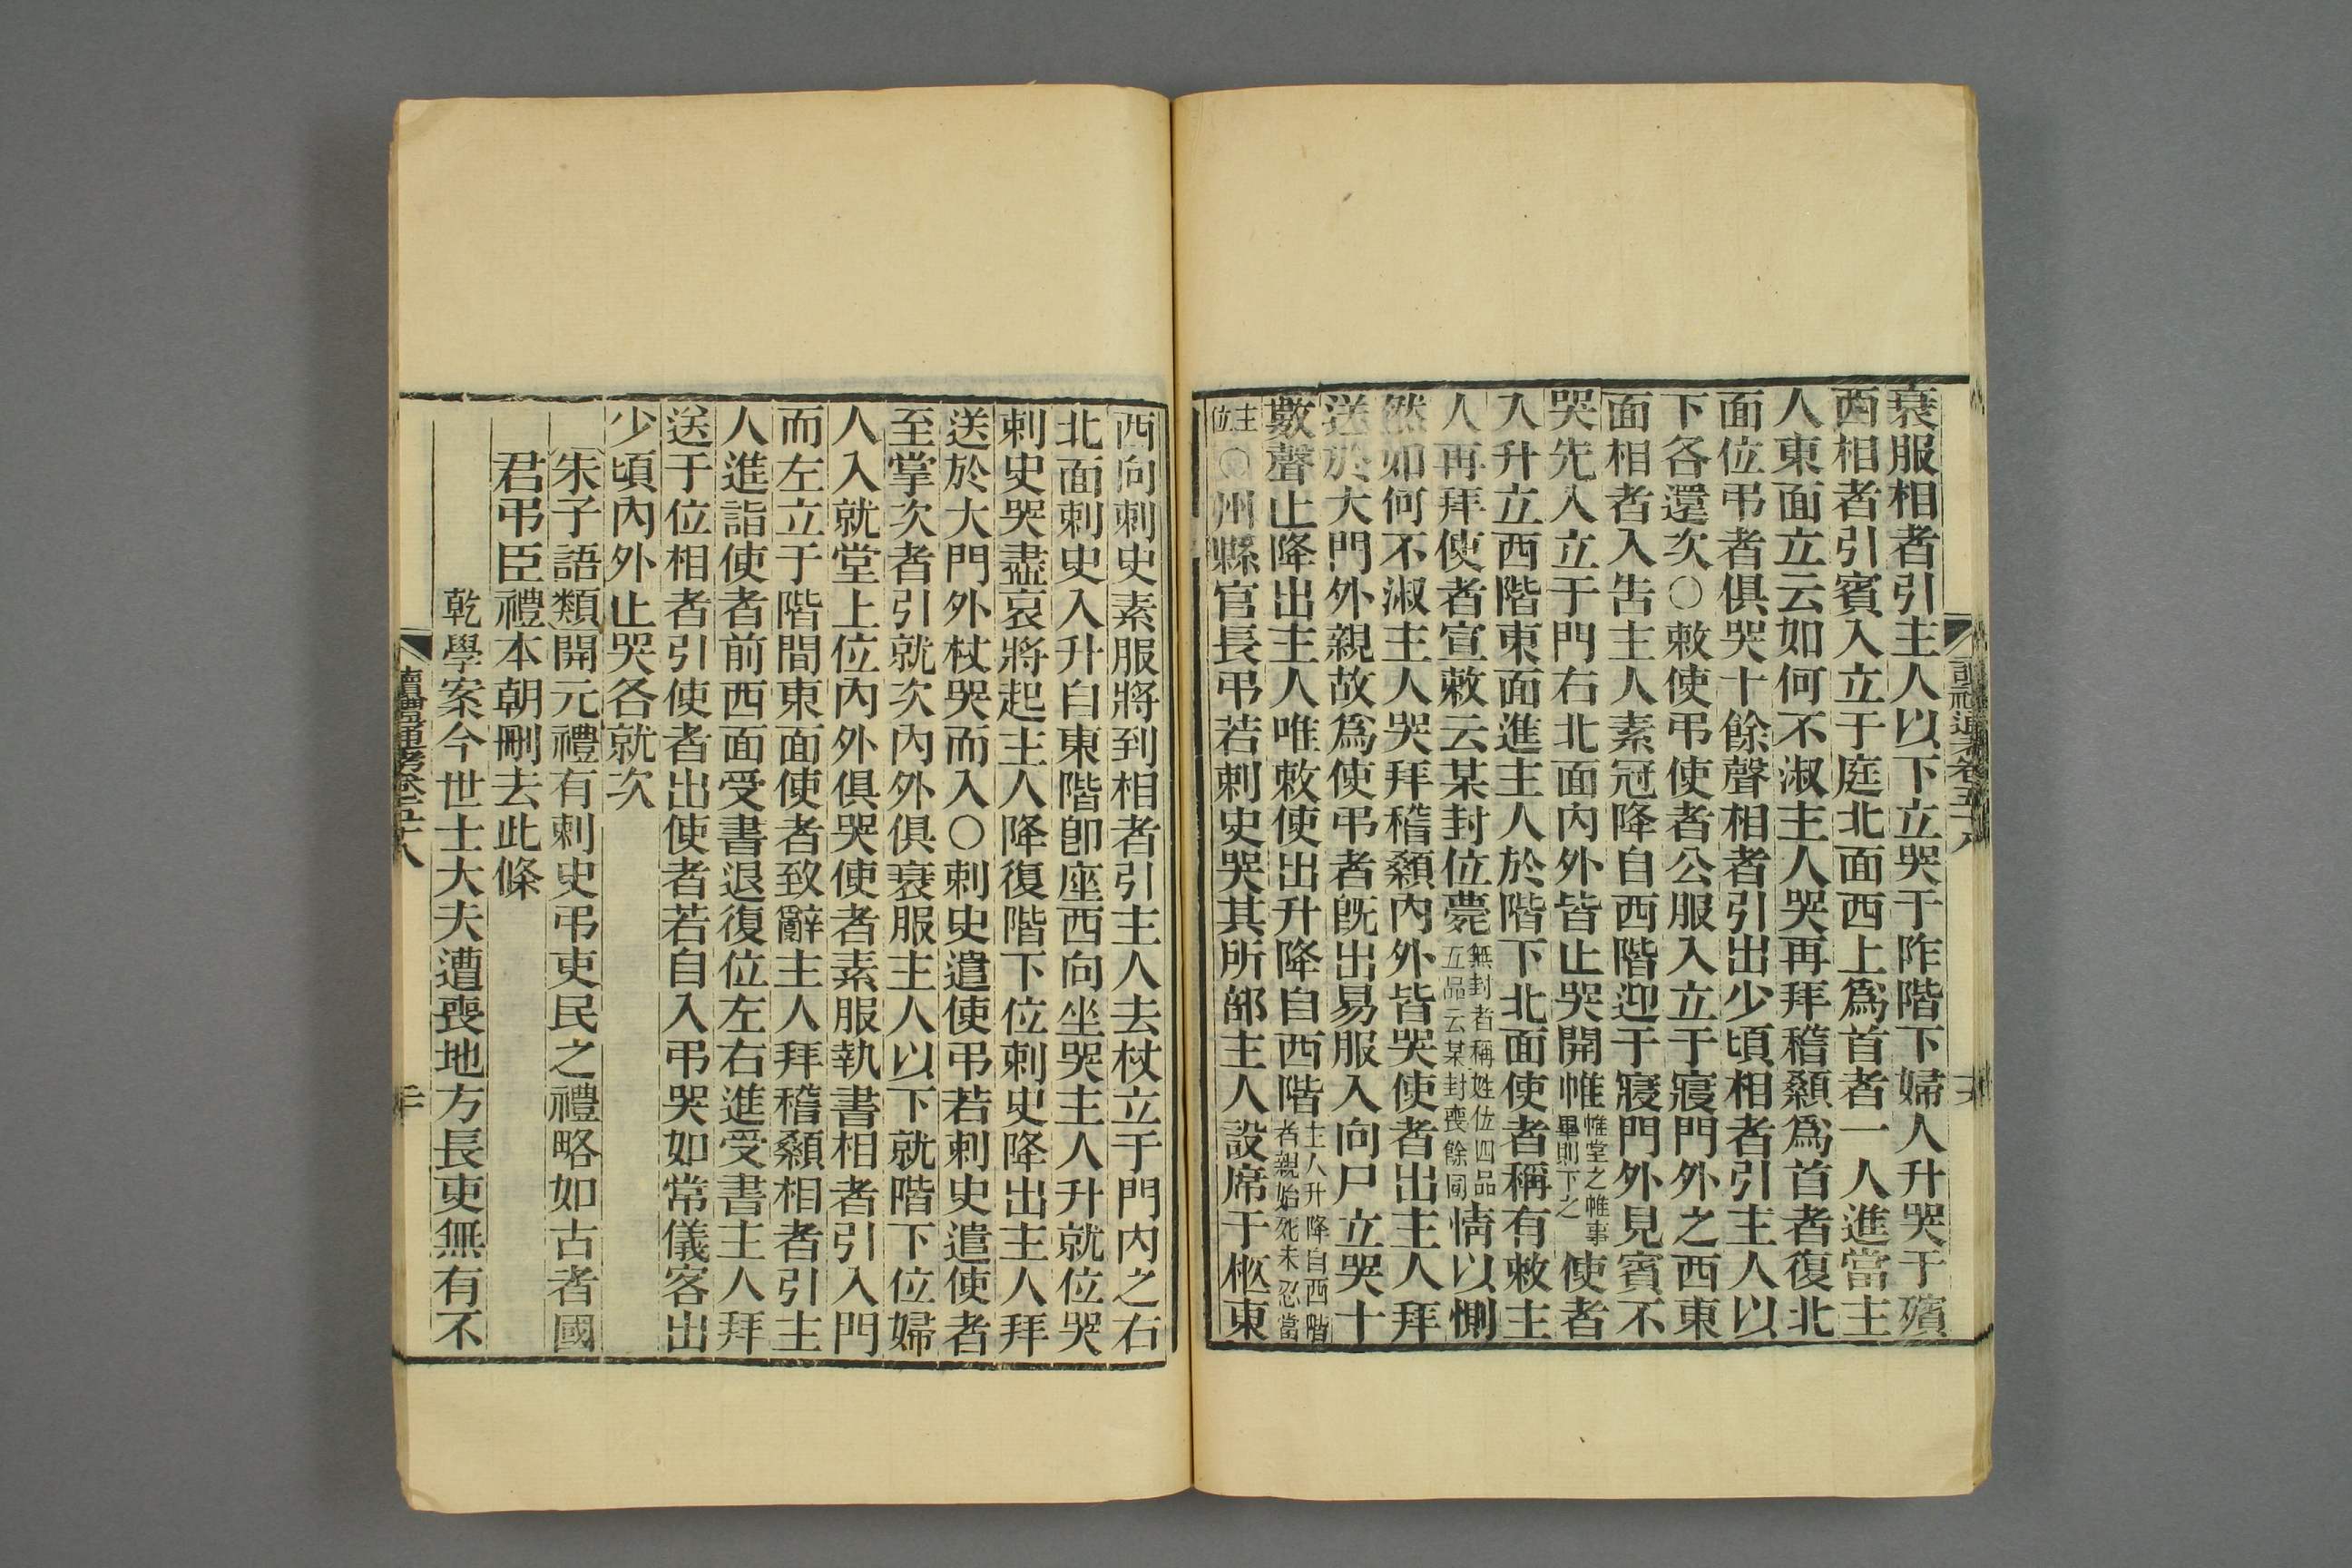 衰服相者引主人以下立哭于阼階下婦人升哭于殯
西相者引賓入立于庭北面西上爲首者一人進當主
人東面立云如何不淑主人哭再拜稽顙爲首者復北
面位弔者俱哭十餘聲相者引出少頃相者引主人以
下各還次○敕使弔使者公服入立于寢門外之西東
面相者入告主人素冠降自西階迎于寢門外見賓不
哭先入立于門右北面內外皆止哭開帷帷堂之帷事畢則下之使者
入升立西階東面進主人於階下北面使者稱有敕主
人再拜使者宣敕云某封位薨無封者稱姓位四品五品云某封喪餘同情以惻
然如何不淑主人哭拜稽顙內外皆哭使者出主人拜
送於大門外親故爲使弔者旣出易服入向尸立哭十
數聲止降出主人唯敕使出升降自西階主人升降自西階者親始死未忍當
主位○州縣官長弔若刺史哭其所部主人設席于柩東
西向刺史素服將到相者引主人去杖立于門內之右
北面刺史入升自東階卽座西向坐哭主人升就位哭
刺史哭盡哀將起主人降復階下位刺史降出主人拜
送於大門外杖哭而入○刺史遣使弔若刺史遣使者
至掌次者引就次內外俱衰服主人以下就階下位婦
人入就堂上位內外俱哭使者素服執書相者引入門
而左立于階間東面使者致辭主人拜稽顙相者引主
人進詣使者前西面受書退復位左右進受書主人拜
送于位相者引使者出使者若自入弔哭如常儀客出
少頃內外止哭各就次
朱子語類開元禮有刺史弔吏民之禮略如古者國
君弔臣禮本朝刪去此條
乾學案今世士大夫遭喪地方長吏無有不
讀禮通考卷五十八